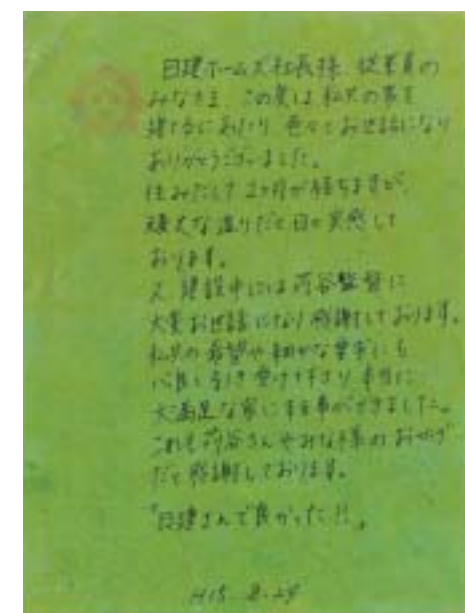 日建ホームズ社長様 従業員の
みなさま この度は私共の家を
建てるにあたり 色々とお世話になり
ありがとうございました。
住みだして2ヶ月が経ちますが、
頑丈な造りだと日々実感して
おります。
又 建設中には苅谷監督に
大変お世話になり感謝しております。
私共の希望や細かな要求にも
心良く引き受けて下さり 本当に
大満足な家にする事ができました。
これも苅谷さんやみな様のおかげ
だと感謝しております。
"日建さんで良かった!!"
H15.8.29